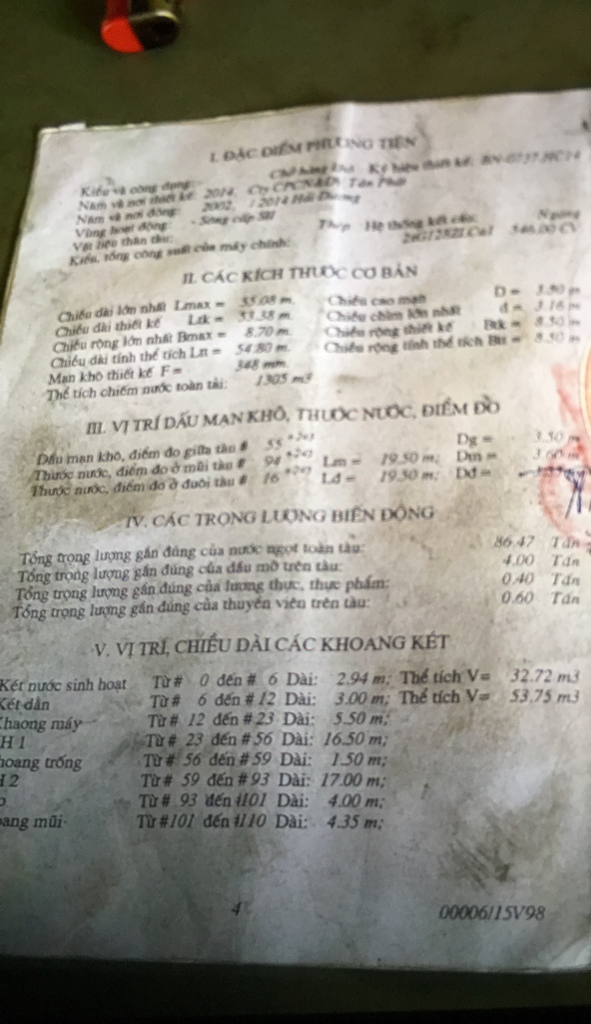 I. ĐẶC ĐIỂM PHƯƠNG TIỆN
Kiểu và công dụng: Chở hàng khô Ký hiệu thiết kế:
Năm và nơi thiết kế: 2014, Cty CPCN&DV Tân Phát
Năm và nơi đóng: 2002, / 2014 Hải Dương
Vùng hoạt động: - Sông cấp SII
Vật liệu thân tàu: Thép Hệ thống kết cấu: Ngang
Kiểu, tổng công suất của máy chính: 546.00 CV
II. CÁC KÍCH THƯỚC CƠ BẢN
Chiều dài lớn nhất Lmax = 55.08 m. Chiều cao mạn D = 3.50 m
Chiều dài thiết kế Ltk = 53.38 m. Chiều chìm lớn nhất d = 3.16 m
Chiều rộng lớn nhất Bmax = 8.70 m. Chiều rộng thiết kế Btk = 8.50 m
Chiều dài tính thể tích Ltt = 54.80 m. Chiều rộng tính thể tích Btt = 8.50 m
Mạn khô thiết kế F = 348 mm.
Thể tích chiếm nước toàn tải: 1305 m3
III. VỊ TRÍ DẤU MẠN KHÔ, THƯỚC NƯỚC, ĐIỂM ĐO
Dấu mạn khô, điểm đo giữa tàu # 55 Dg = 3.50 m
Thước nước, điểm đo ở mũi tàu # 94 Lm = 19.50 m; Dm =
Thước nước, điểm đo ở đuôi tàu # 16 Lđ = 19.50 m; Dđ =
IV. CÁC TRỌNG LƯỢNG BIẾN ĐỘNG
Tổng trọng lượng gần đúng của nước ngọt toàn tàu: 86.47 Tấn
Tổng trọng lượng gần đúng của dầu mỡ trên tàu: 4.00 Tấn
Tổng trọng lượng gần đúng của lương thực, thực phẩm: 0.40 Tấn
Tổng trọng lượng gần đúng của thuyền viên trên tàu: 0.60 Tấn
V. VỊ TRÍ, CHIỀU DÀI CÁC KHOANG KÉT
Két nước sinh hoạt Từ # 0 đến # 6 Dài: 2.94 m; Thể tích V= 32.72 m3
Két dằn Từ # 6 đến # 12 Dài: 3.00 m; Thể tích V= 53.75 m3
Khaong máy Từ # 12 đến # 23 Dài: 5.50 m;
H 1 Từ # 23 đến # 56 Dài: 16.50 m;
hoang trống Từ # 56 đến # 59 Dài: 1.50 m;
2 Từ # 59 đến # 93 Dài: 17.00 m;
Từ # 93 đến #101 Dài: 4.00 m;
oang mũi Từ #101 đến #110 Dài: 4.35 m;
4 00006/15V98